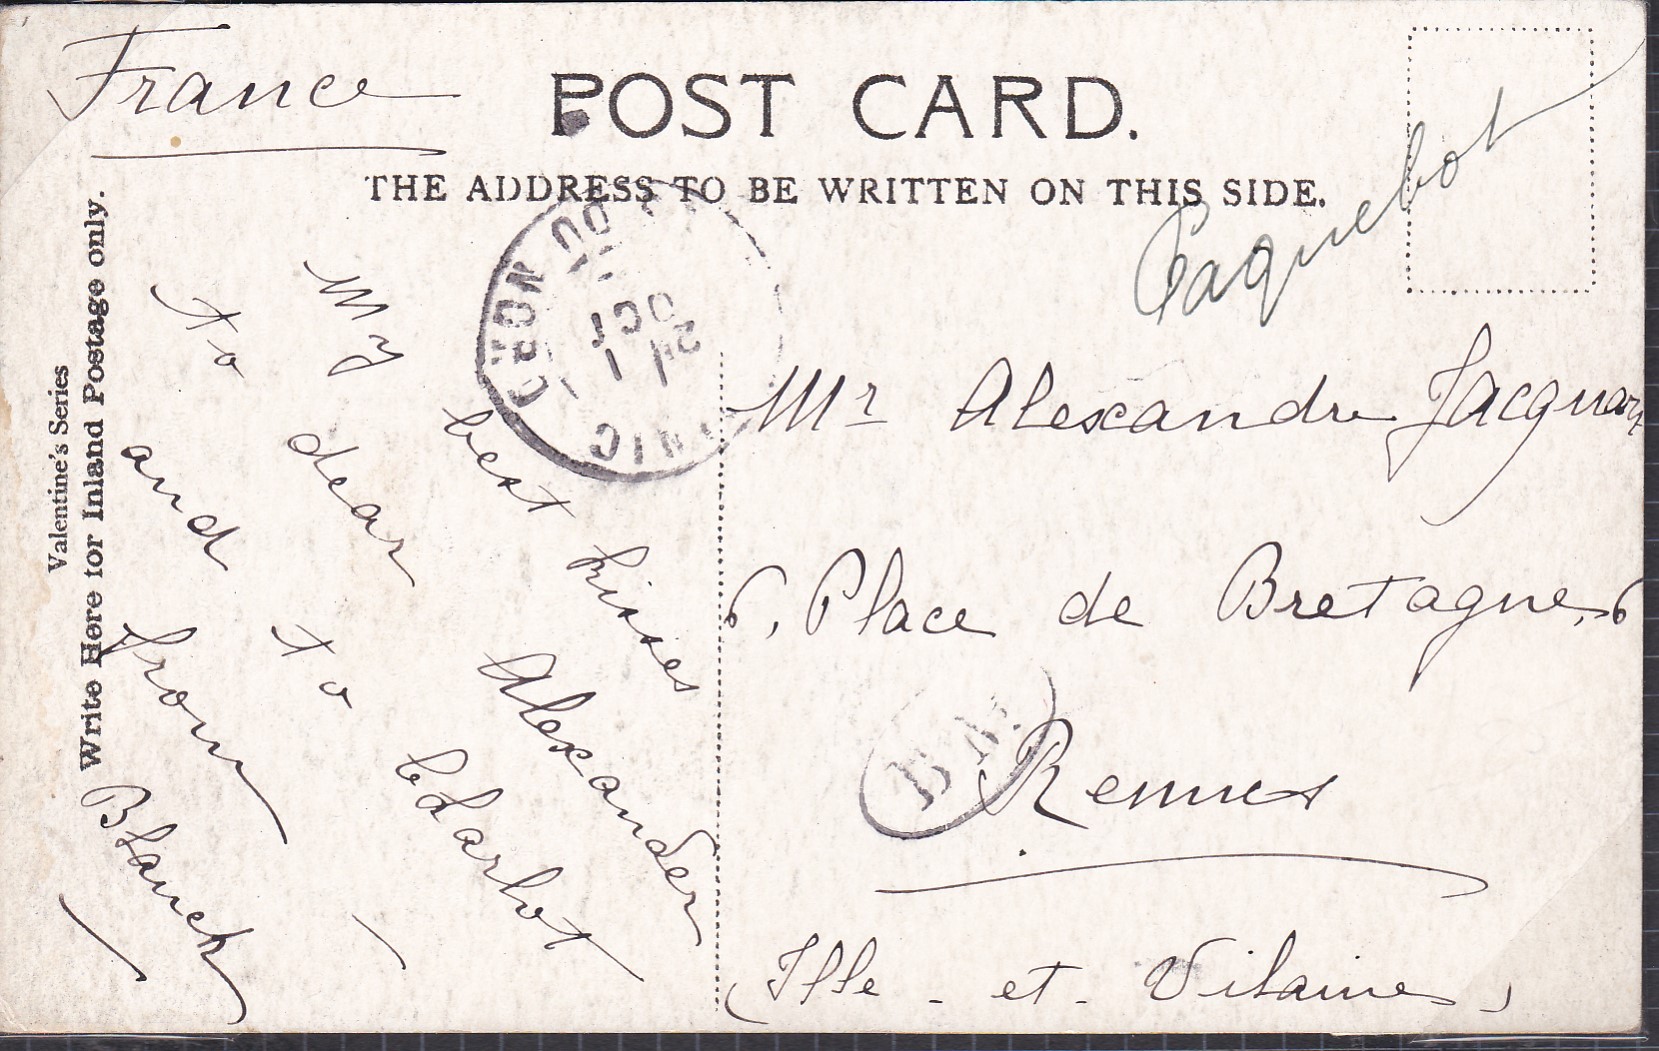 France
POST CARD.
THE ADDRESS TO BE WRITTEN ON THIS SIDE.
Paquebot
Valentine's Series
Write Here for Inland Postage only.
My best kisses
to dear Alexander
and to
from
Blanch
OCT
Mr Alexandre
6, Place de Bretagne, 6
B.M.
Rennes
(Ille - et - Vilaine)